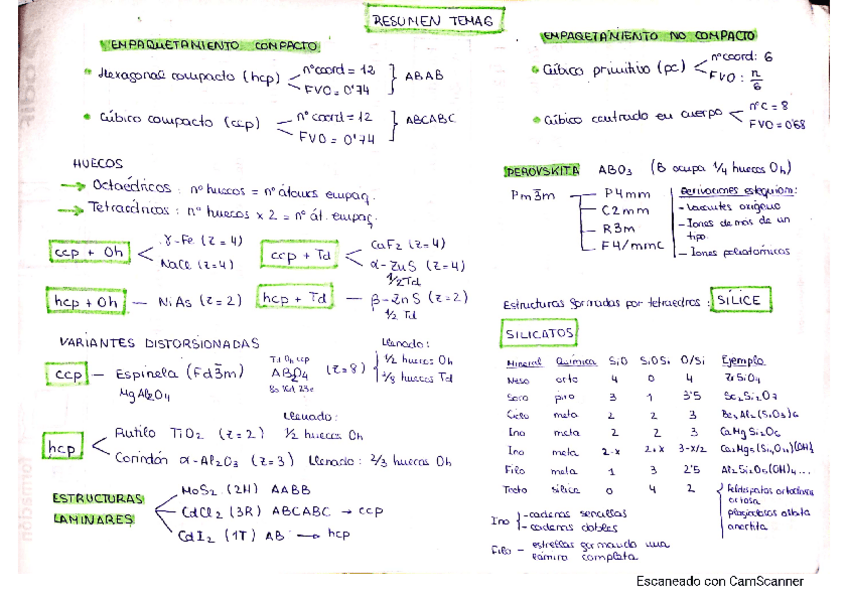 RESUMEN TEMA6
EMPAQUETAMIENTO COMPACTO
Hexagonal compacto (hcp)
nºcoord = 12
FVO = 0'74
ABAB
Cúbico compacto (ccp)
nº coord = 12
FVO = 0'74
ABCABC
HUECOS
Octaédricos : nº huecos = nº átomos empaq.
Tetraédricos : nº huecos x 2 = nº át. empaq.
ccp + Oh
γ-Fe (z = 4)
NaCl (z=4)
ccp + Td
CaF2 (z=4)
α-ZnS (z=4)
1/2 Td
hcp + Oh — NiAs (z=2)
hcp + Td — β-ZnS (z=2)
1/2 Td
VARIANTES DISTORSIONADAS
ccp — Espinela (Fd3̄m)
MgAl2O4
Td Oh ccp
AB2O4 (z=8)
8a 16d 32e
Llenado:
1/2 huecos Oh
1/8 huecos Td
hcp
Llenado:
Rutilo TiO2 (z=2) 1/2 huecos Oh
Corindón α-Al2O3 (z=3) Llenado: 2/3 huecos Oh
ESTRUCTURAS LAMINARES
MoS2 (2H) AABB
CdCl2 (3R) ABCABC → ccp
CdI2 (1T) AB → hcp
EMPAQETAMIENTO NO COMPACTO
Cúbico primitivo (pc)
nºcoord: 6
FVO : π/6
Cúbico centrado en cuerpo
nºc = 8
FVO=0'68
PEROVSKITA ABO3 (B ocupa 1/4 huecos Oh)
Pm3̄m
P4mm
C2mm
R3m
F4/mmc
Derivaciones estequiom:
- Vacantes oxígeno
- Iones de más de un tipo
- Iones poliatómicos
Estructuras formadas por tetraedros : SÍLICE
SILICATOS
Mineral Química SiO SiOSi O/Si Ejemplo
Neso orto 4 0 4 ZrSiO4
Soro piro 3 1 3'5 Sc2Si2O7
Ciclo meta 2 2 3 Be3Al2(SiO3)6
Ino meta 2 2 3 CaMgSi2O6
Ino meta 2-x 2+x 3-x/2 Ca2Mg5(Si4O11)(OH)
Filo meta 1 3 2'5 Al2Si2O5(OH)4...
Tecto sílice 0 4 2
Feldespatos ortoclasa
ortosa
plagioclasas albita
anortita
Ino
- cadenas sencillas
- cadenas dobles
Filo – estrellas formando una lámina completa
Escaneado con CamScanner